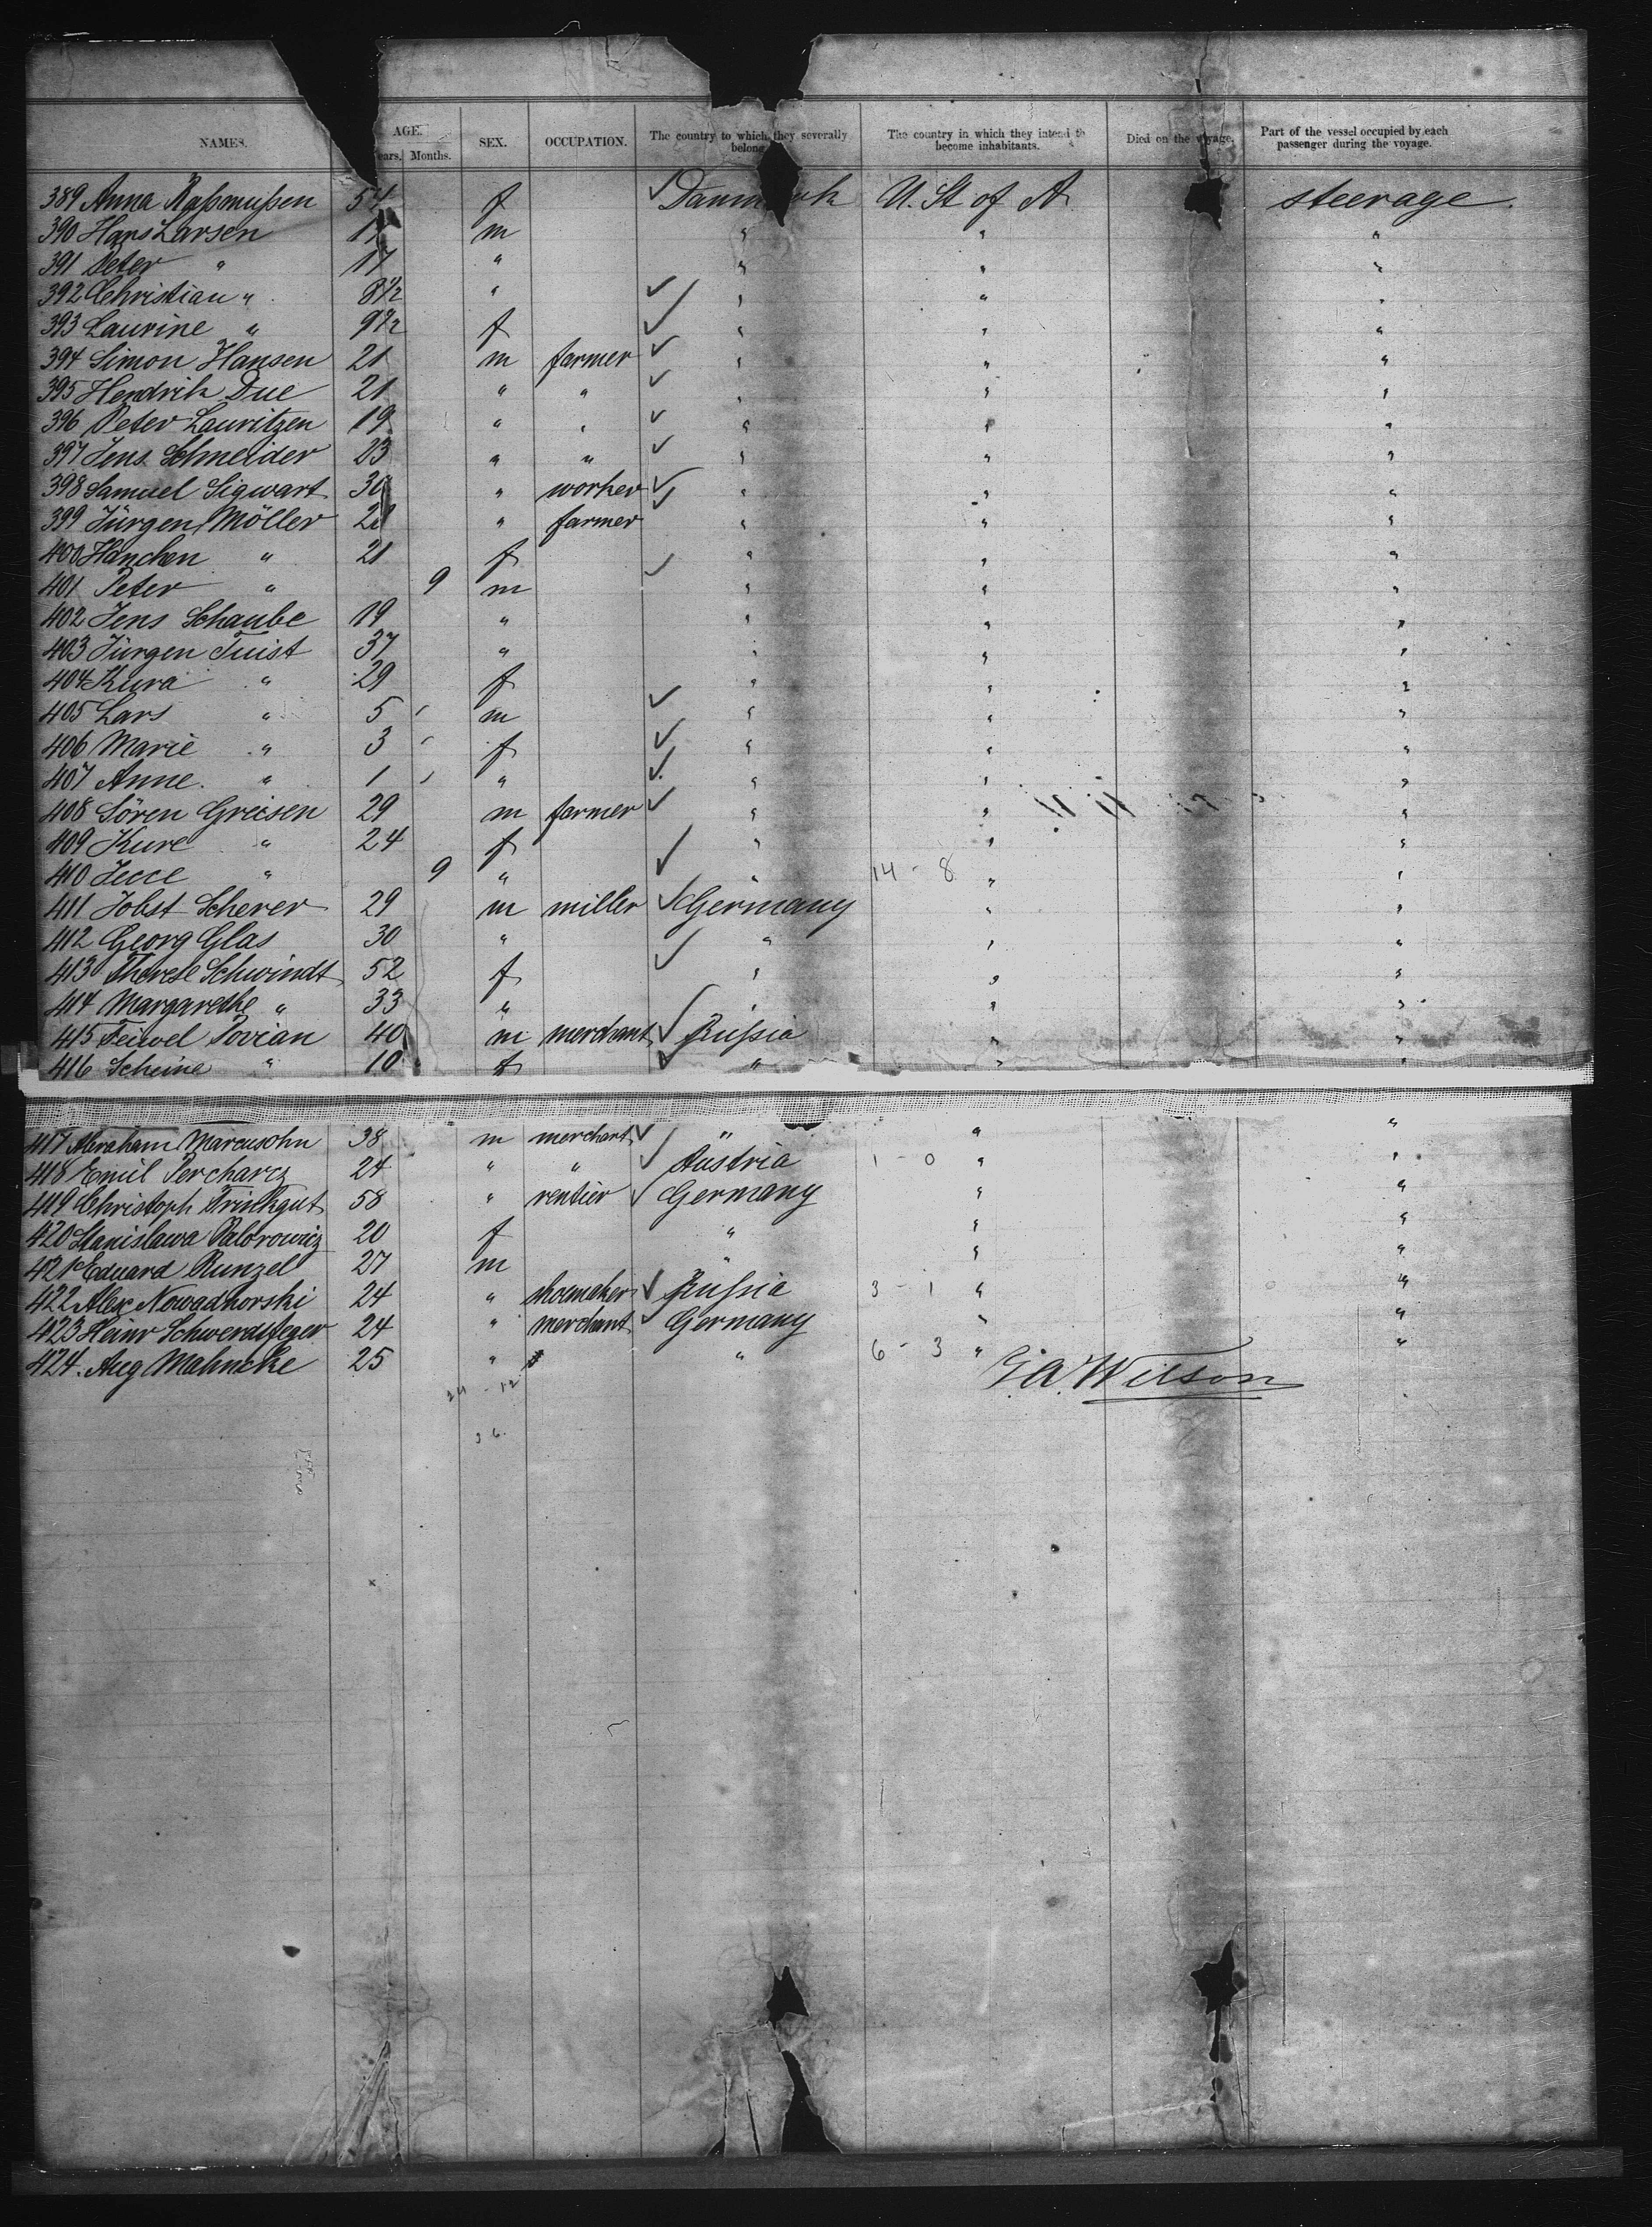 NAMES. AGE. Years. Months. SEX. OCCUPATION. The country to which they severally belong. The country in which they intend to become inhabitants. Died on the voyage. Part of the vessel occupied by each passenger during the voyage.
389 Anna Raßmußen 54 f Danmark U. St of A steerage.
390 Hans Larsen m " " "
391 Peter " 17 " " " "
392 Christian " 8½ " " " "
393 Laurine " 9½ f " " "
394 Simon Hansen 21 m farmer " " "
395 Hendrik Due 21 " " " " "
396 Peter Lauritzen 19 " " " " "
397 Jens Schneider 23 " " " " "
398 Samuel Sigwart 30 " worker " " "
399 Jürgen Möller 28 " farmer " " "
400 Hanchen " 21 f " " "
401 Peter " 9 m " " "
402 Jens Schaube 19 " " " "
403 Jürgen Tuist 37 " " " "
404 Kura " 29 f " " "
405 Lars " 5 m " " "
406 Marie " 3 f " " "
407 Anne " 1 " " " "
408 Sören Greisen 29 m farmer " " "
409 Kure " 24 f " " "
410 Jecce " 9 " " 14 - 8 " "
411 Jobst Scherer 29 m miller Germany " "
412 Georg Glas 30 " " " "
413 Therese Schwindt 52 f " " "
414 Margarethe " 33 " " " "
415 Feiwel Povian 40 m merchant Rußia " "
416 Scheine " 10 f " " "
417 Abraham Marcusohn 38 m merchant " " "
418 Emil Percharcz 24 " " Austria 1 - 0 " "
419 Christoph Trinkgut 58 " rentier Germany " "
420 Stanislawa Palorowicz 20 f " " "
421 Eduard Runzel 27 m " " "
422 Alex Nowadworski 24 " shoemaker Rußia 3 - 1 " "
423 Heinr Schwerdtfeger 24 " merchant Germany " "
424. Aug Mahncke 25 " " " 6 - 3 " "
G. A. Wilson
24 - 12
36